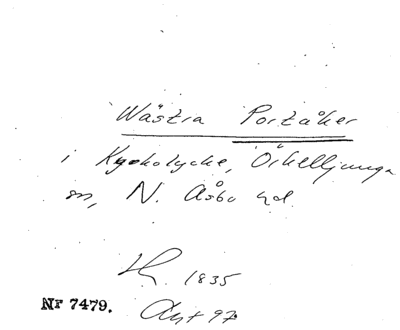 Wästra Portåker
i Kyrkolycke, Örkelljunga
sn, N. Åsbo hd.
1835
Nr 7479.